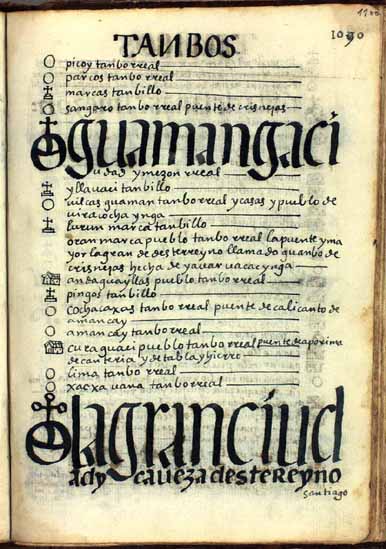 1100
1090
TANBOS
picoy tanbo rreal
parcos tanbo rreal
marcas tanbillo
sangaro tanbo rreal puente de crisnejas
guamangaci
udad y mezon rreal
yllavaci tanbillo
uilcas guaman tanbo rreal y casas y pueblo de
uiracocha ynga
lurun marca tanbillo
oran marca pueblo tanbo rreal la puente yma
yor la gran de deste rreyno llamado guanbo de
crisnejas hecha de yauar uaca ynga
andaguayllas pueblo tanbo rreal
pingos tanbillo
cochacaxas tanbo rreal puente de calicanto de
amancay
amancay tanbo rreal
curaguaci pueblo tanbo rreal puente de aporima
de canteria y de tabla y hierro
lima tanbo rreal
xacxa uana tanbo rreal
la gran ciud
ad y caueza deste Reyno
santiago